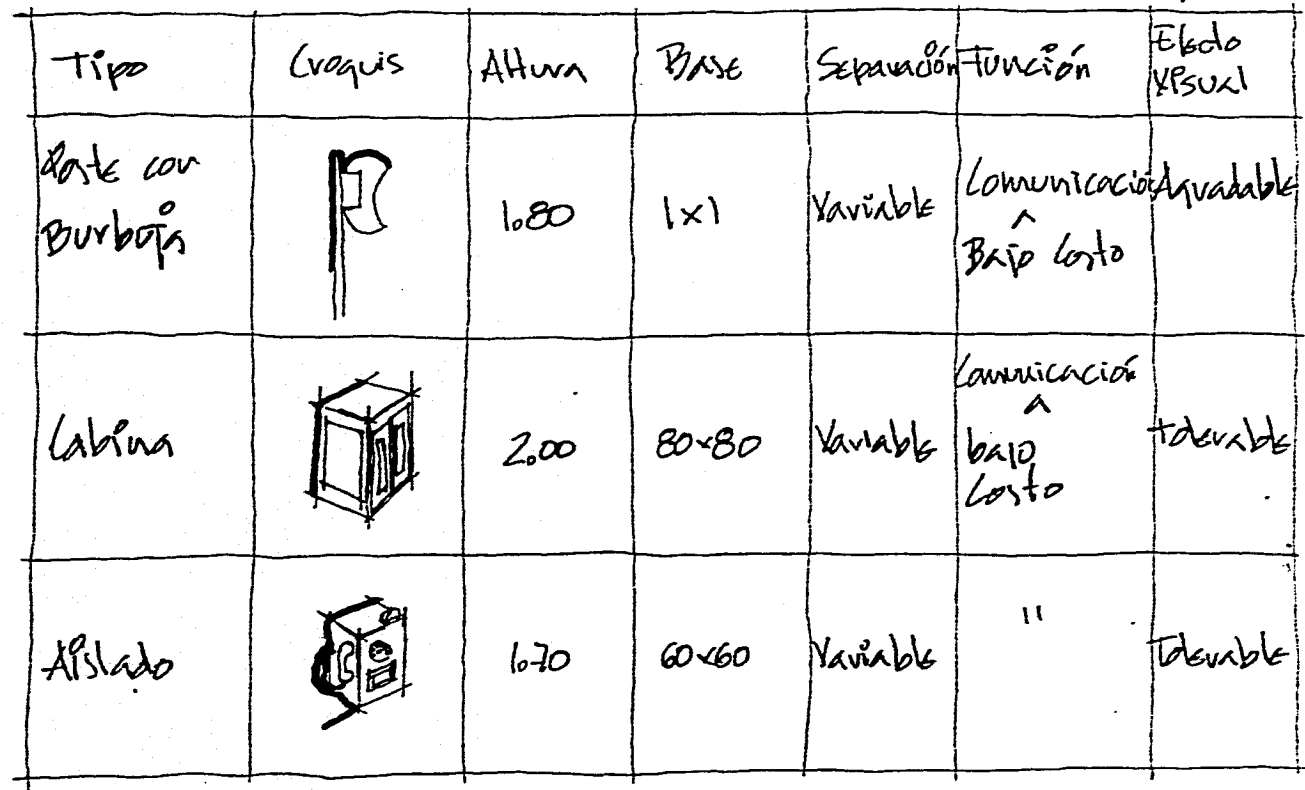 Tipo Croquis Altura Base Separación Función Efecto
Visual
Poste con
Burbuja
1.80 1x1 Variable Comunicación Agradable
a
Bajo Costo
Cabina 2.00 80x80 Variable Comunicación tolerable
a
bajo
Costo
Aislado 1.70 60x60 Variable " Tolerable